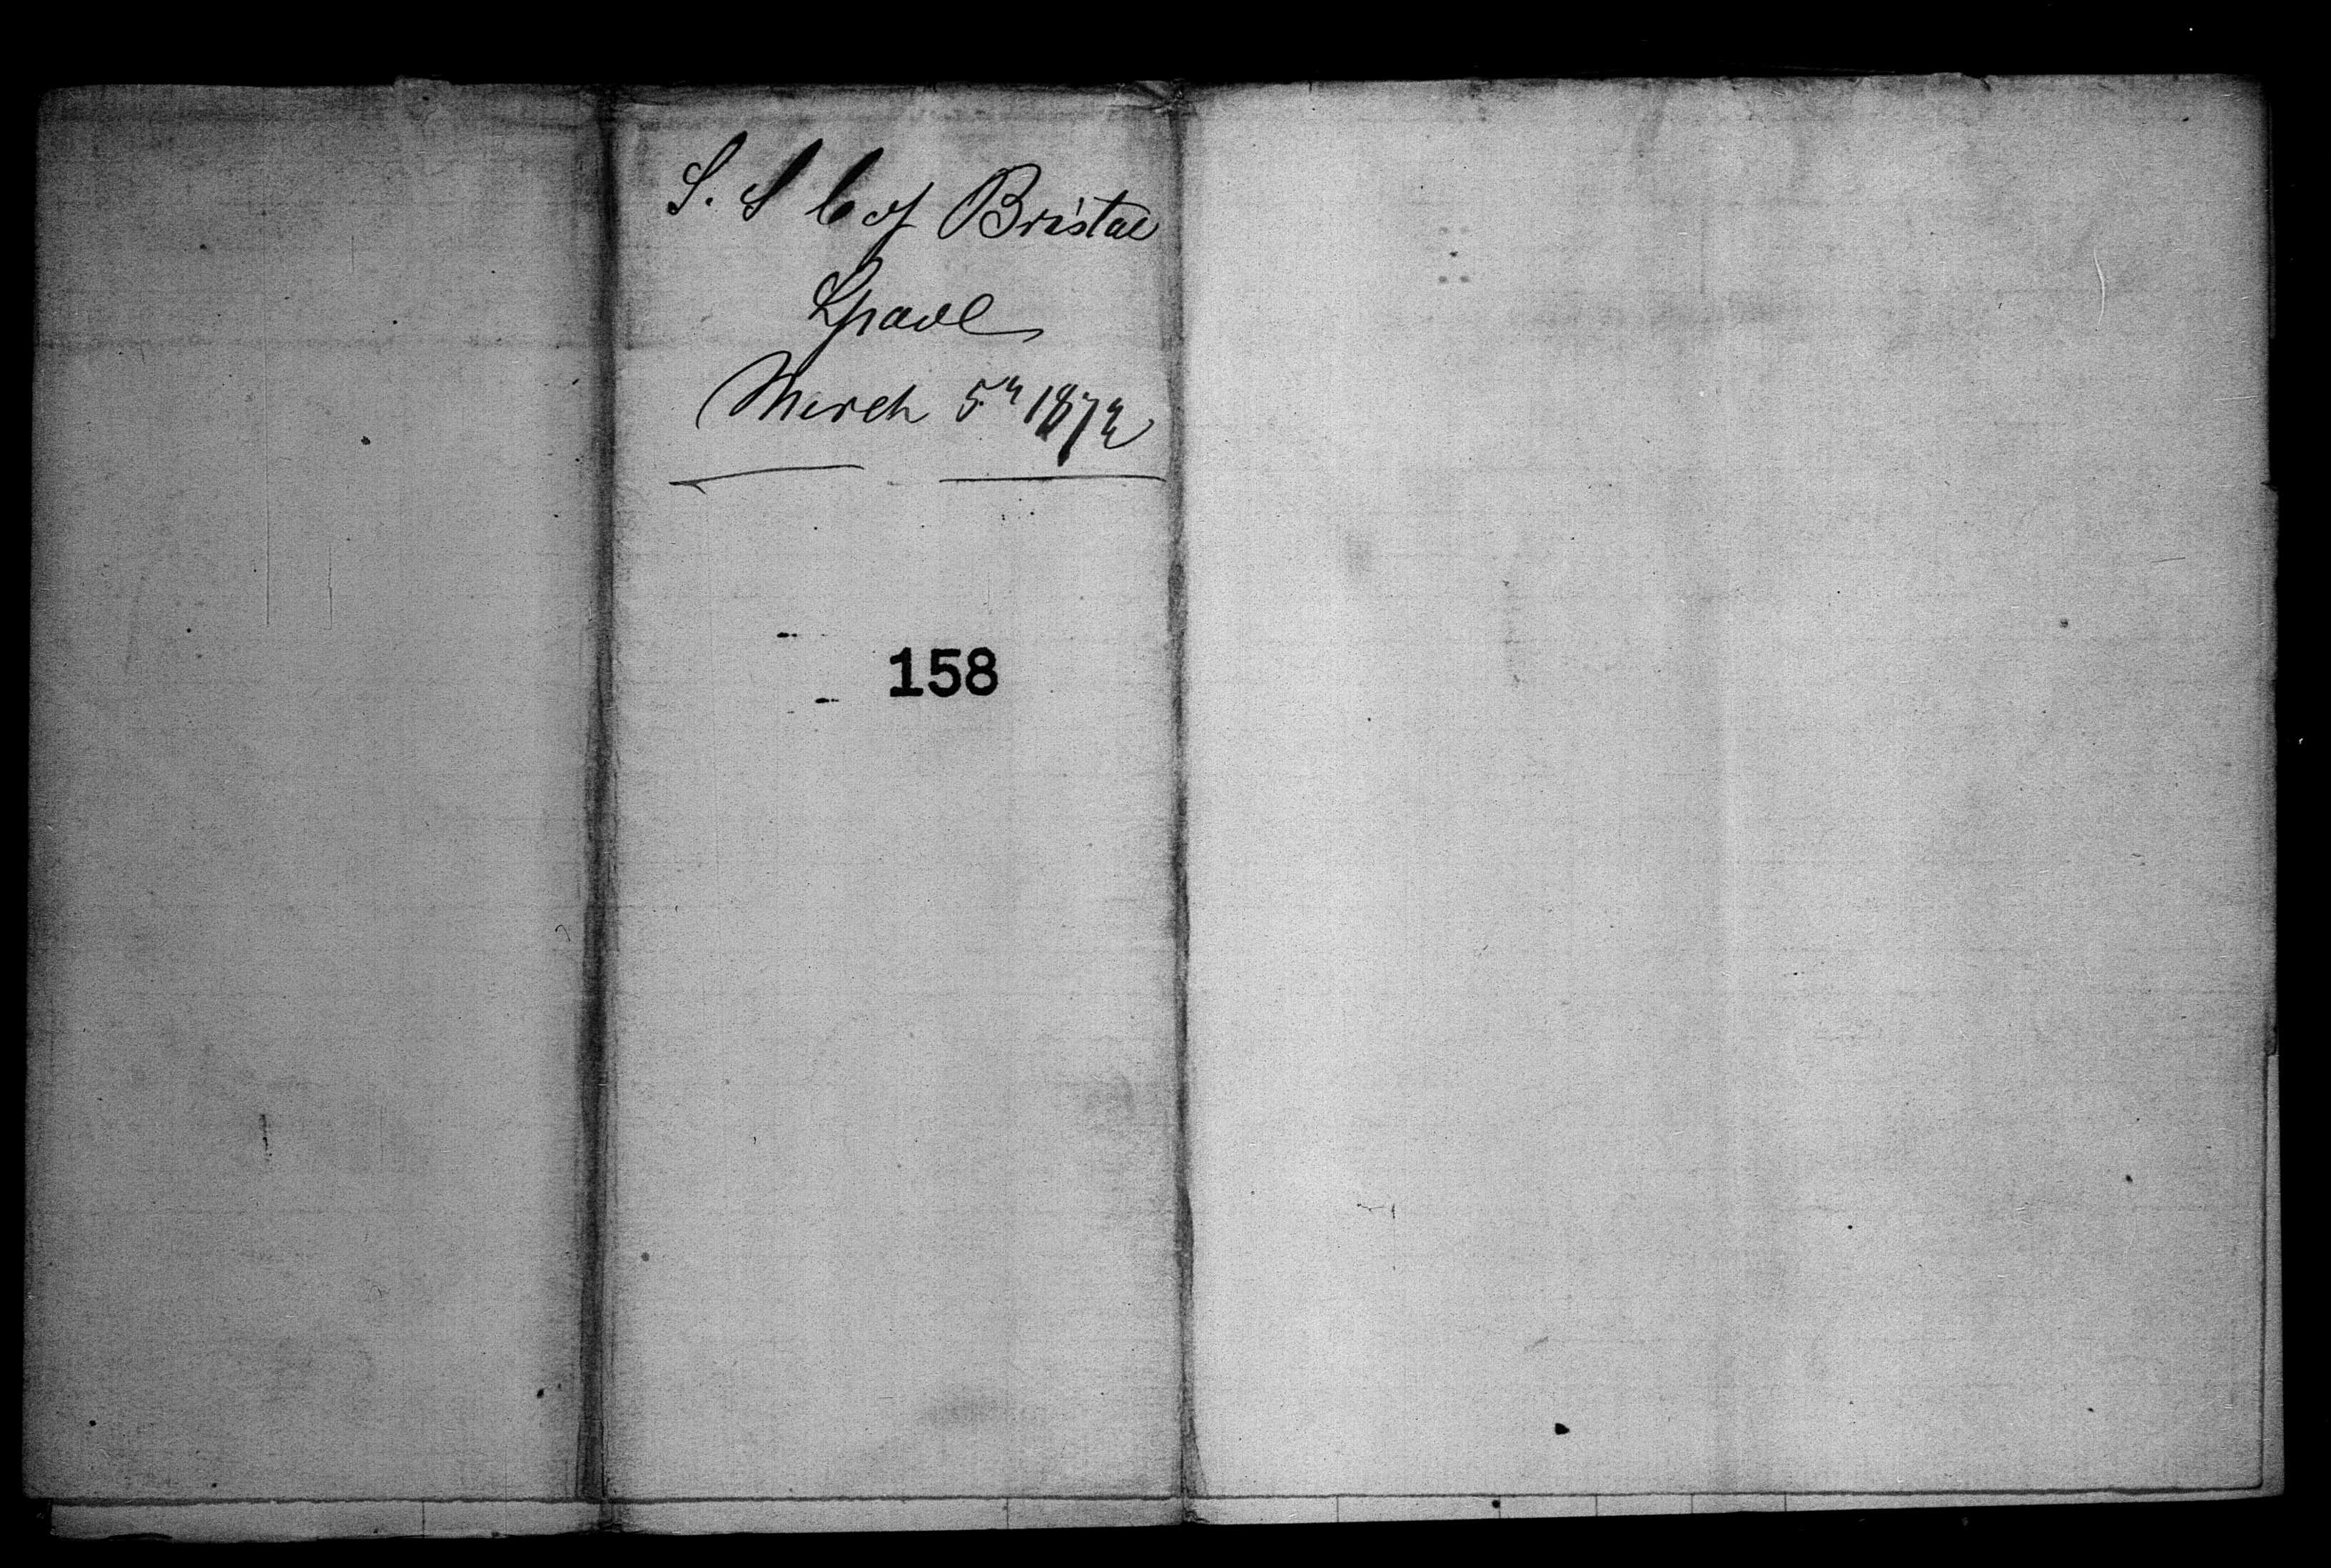 S. S C of Bristol
March 5th 1872
158